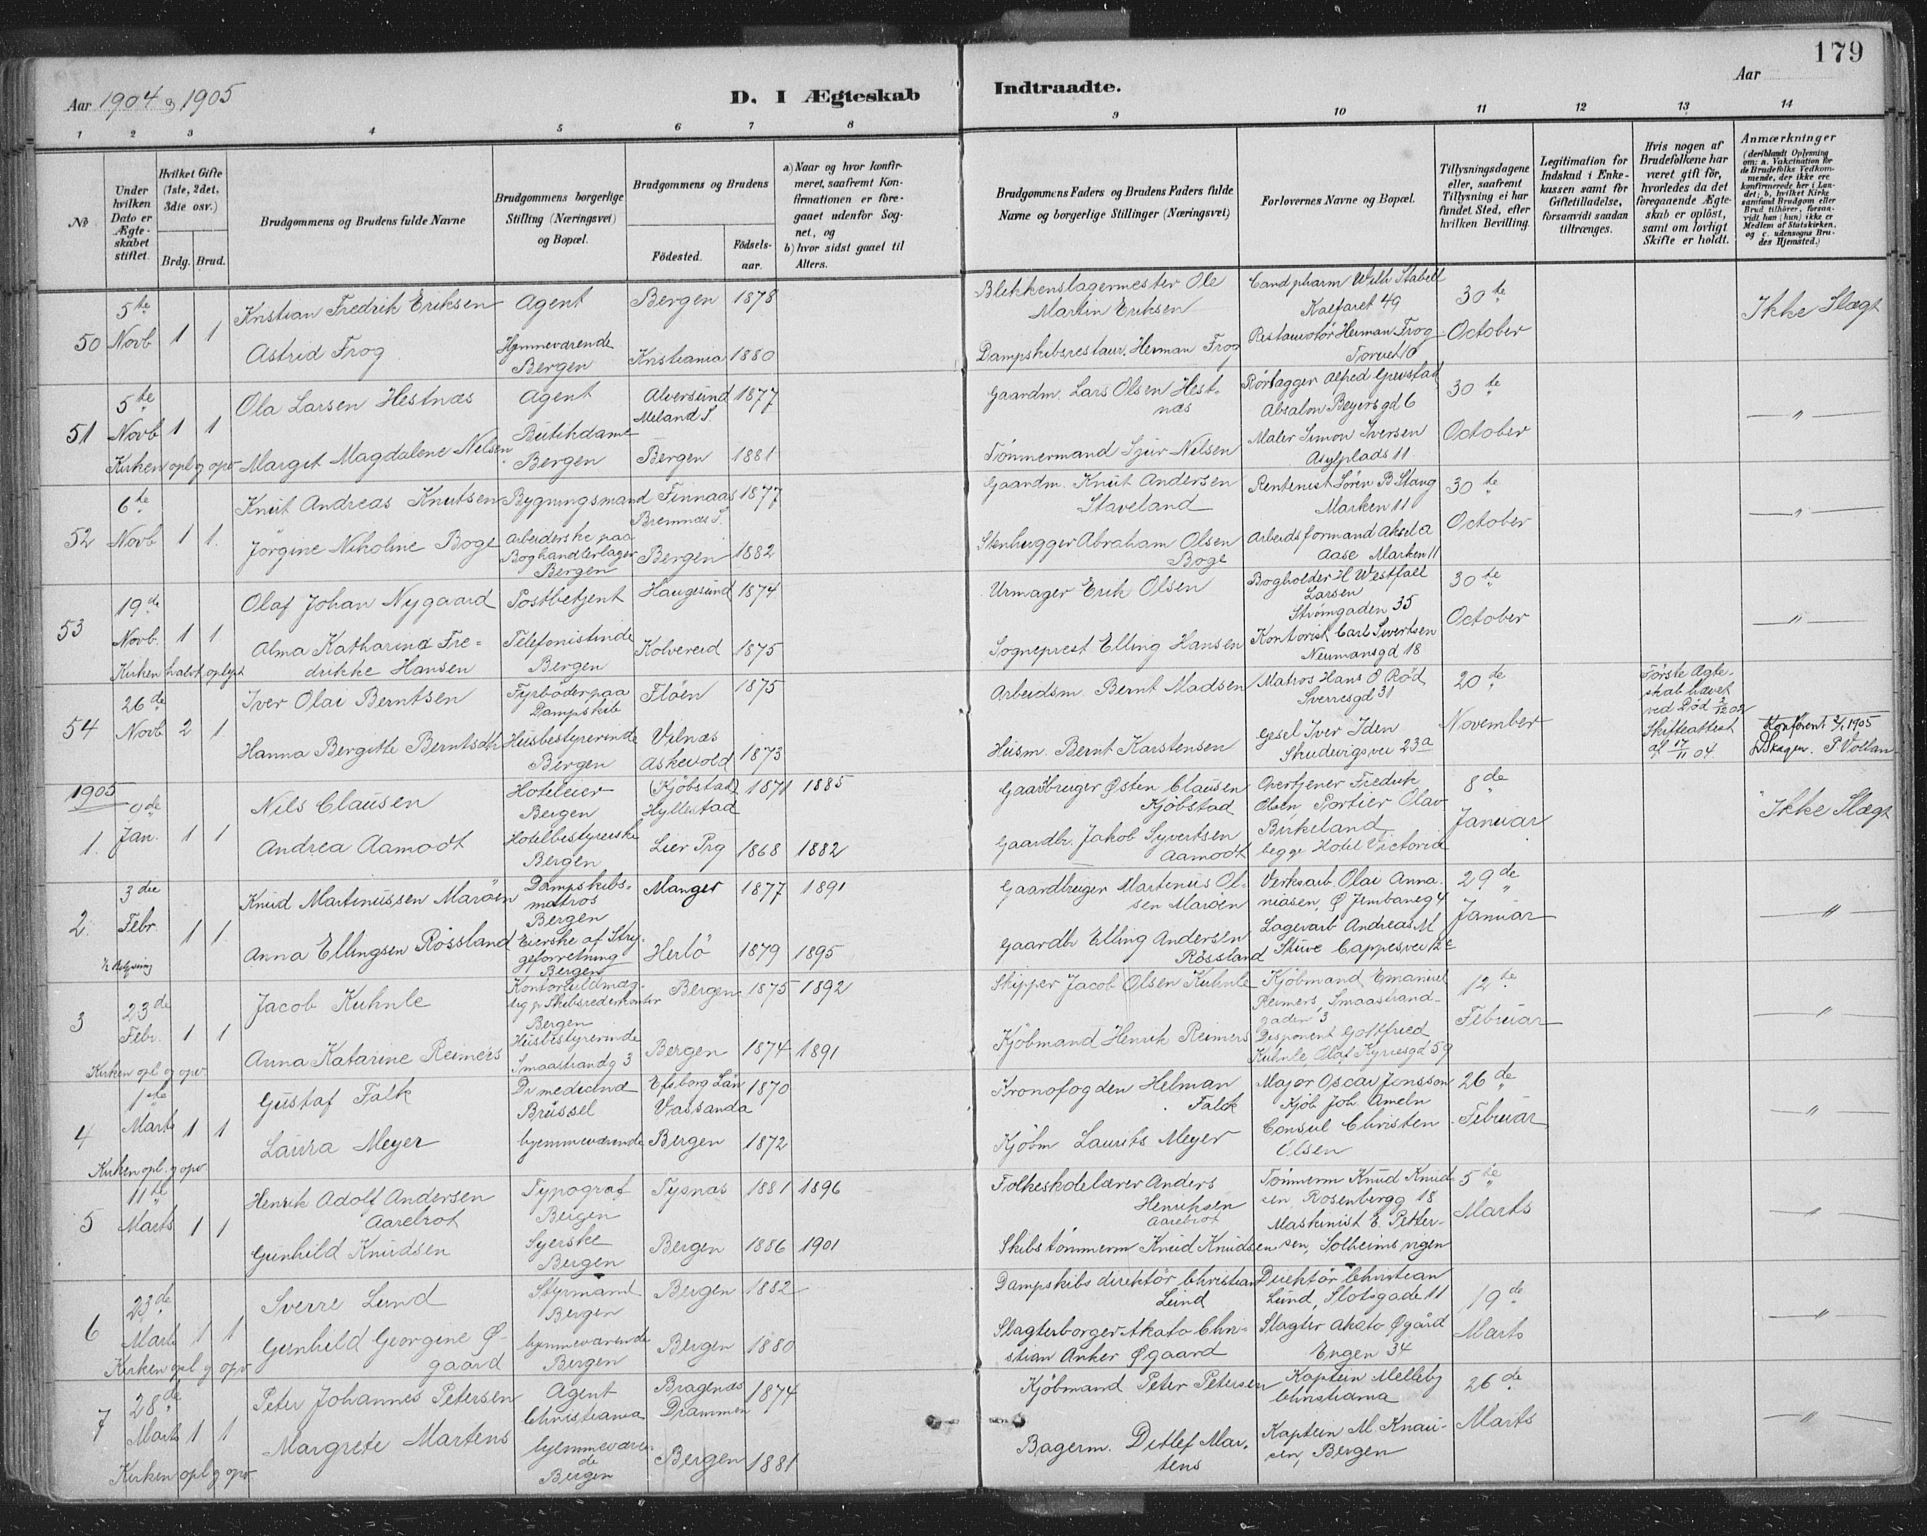 179
Aar 1904 og 1905
D. I Ægteskab
Indtraadte.
Aar
1 2 3 4 5 6 7 8 9 10 11 12 13 14
No
Under hvilken Dato er Ægteskabet stiftet.
Hvilket Gifte (1ste, 2det, 3die osv.)
Brdg. Brud.
Brudgommens og Brudens fulde Navne
Brudgommens borgerlige Stilling (Næringsvei) og Bopæl.
Brudgommens og Brudens
Fødested.
Fødselsaar.
a) Naar og hvor konfirmeret, saafremt Konfirmationen er foregaaet udenfor Sognet, og
b) hvor sidst gaaet til Alters.
Brudgommens Faders og Brudens Faders fulde Navne og borgerlige Stillinger (Næringsvei)
Forlovernes Navne og Bopæl.
Tillysningsdagene eller, saafremt Tillysning ei har fundet Sted, efter hvilken Bevilling.
Legitimation for Indskud i Enkekassen samt for Giftetilladelse, forsaavidt saadan tiltrænges.
Hvis nogen af Brudefolkene har været gift før, hvorledes da det foregaaende Ægteskab er opløst, samt om lovligt Skifte er holdt.
Anmærkninger
(deriblandt Oplysning om: a. Vakcination for de Brudefolks Vedkommende, der ikke ere konfirmerede her i Landet; b. hvilket Kirkesamfund Brudgom eller Brud tilhører, forsaavidt han (hun) ikke er Medlem af Statskirken, og c. udensogns Brudes Hjemsted.)
50 5te Novb 1 1
Kristian Fredrik Eriksen Agent Bergen 1878
Blikkenslagermester Ole Martin Eriksen
Cand pharm Wilh Stabell Kalfaret 49
30te October
Ikke Slægt
Astrid Frog Hjemmeværende Bergen Kristiania 1880
Dampskibsrestaur. Herman Frog
Restauratør Herman Frog Torvet 10
51 5te Novb 1 1
Kirken opl og opv
Ola Larsen Hestnæs Agent Alversund Meland S. 1877
Gaardm. Lars Olsen Hestnæs
Rørlægger Alfred Grevstad Absalon Beyersgd 6
30te October
— " —
Margit Magdalene Nelsen Butikdame Bergen Bergen 1881
Tømmermand Sjur Nelsen
Maler Simon Iversen Asylplads 11
52 6te Novb 1 1.
Knut Andreas Knutsen Bygningsmand Finnaas Bremnæs S. 1877
Gaardm. Knut Andersen Staveland
Rentenist Søren B Stang Marken 11
30te October
— " —
Jörgine Nikoline Boge Arbeiderske paa Boghandlerlager Bergen Bergen 1882
Stenhugger Abraham Olsen Boge
Arbeidsformand Aksel A Aase Marken 11
53 19de Novb. 1 1
Kirken halvt oplyst
Olaf Johan Nygaard Postbetjent Haugesund 1874
Urmager Erik Olsen
Bogholder H Westfall Larsen Strømgaden 35
30te October
— " —
Alma Katharina Fredrikke Hansen Telefonistinde Bergen Kolvereid 1875
Sogneprest Elling Hansen
Kontorist Carl Sivertsen Neumansgd 18
54 26de Novb 2 1
Iver Olai Berntsen Fyrbøder paa Dampskib Fløen 1875
Arbeidsm. Bernt Madsen
Matros Hans O Rød Sverresgd 31
20de November
Første Ægteskab hævet ved Død 2/12 02
Skifteattest af 17/11 04.
Konferent 2/1 1905
P. Vollan
Hanna Bergitte Berntsdtr Husbestyrerinde Bergen Vilnæs Askevold 1873
Husm. Bernt Karstensen
Gesel Iver Iden Skudevigsvei 23a
1905
1. 9de Jan. 1 1
Nils Clausen Hoteleier Bergen (Kjøbstad) Hyllestad 1871 1885
Gaardbruger Østen Clausen Kjøbstad
Overtjener Fredrik Olsen Portier Olav Birkeland, begge Hotel Victoria
8de Januar
Ikke Slægt
Andrea Aamodt Hotelbestyrerske Bergen Lier Prg 1868 1882
Gaardbr. Jakob Syvertsen Aamodt
2. 3die Febr. 1 1
1/2 Belysning
Knud Martinussen Marøen Dampskibsmatros Bergen Manger 1877 1891
Gaardbruger Martinus Olsen Marøen
Verksarb. Olai Annaniasen, Ø Jernbaneg 4
29de Januar
"
Anna Ellingsen Røssland Eierske af Strygeforretning Bergen Herlø 1879 1895
Gaardbr Elling Andersen Røssland
Lagerarb Andreas M Stuve Cappesvei 12c
3 23de Febr. 1 1
Kirken opl og opv
Jacob Kuhnle Kontorfuldmægtig p. Skibsrederkontor Bergen Bergen 1875 1892
Skipper Jacob Olsen Kuhnle
Kjøbmand Emanuel Reimers, Smaastrandgaden 3
12te Februar
— " —
Anna Katarine Reimers Husbestyrerinde Smaastrandg 3 Bergen 1874 1891
Kjøbmand Henrik Reimers
Disponent Gottfried Kuhnle, Olaf Kyrresgd 59
4 1ste Marts 1 1
Kirken opl. og opv
Gustaf Falk Dr medicinæ Brüssel Elfsborg Län Vassanda 1870
Kronofogden Helman Falck
Major Oscar Jensson Kjøb Joh Ameln
26de Februar
— " —
Laura Meyer hjemmeværende Bergen 1872
Kjøbm Laurits Meyer
Consul Christen Olsen
5 11te Marts 1 1
Henrik Adolf Andersen Aarebrot Typograf Bergen Tysnæs 1881 1896
Folkeskolelærer Anders Henriksen Aarebrot
Tømmerm Knud Knudsen Rosenbergg 18
5te Marts
— " —
Gunhild Knudsen Syerske Bergen Bergen 1886 1901
Skibstømmerm Knud Knudsen
Maskinist E. Pettersen, Solheimsvigen
6 23de Marts 1 1
Kirken opl og opv
Sverre Lund Styrmand Bergen Bergen 1882
Dampskibsdirektör Christian Lund
Direktör Christian Lund, Slotsgade 11
19de Marts
— " —
Gunhild Georgine Øgaard hjemmeværende Bergen Bergen 1880
Slagterborger Akato Christian Anker Øgaard
Slagter Akato Øgård Engen 34
7 28de Marts 1 1
Kirken opl og opv
Peter Johannes Petersen Agent Christiania Bragenæs Drammen 1874
Kjøbmand Peter Petersen
Kaptein Melleby Christiania
26de Marts
— " —
Margrete Martens hjemmeværende Bergen Bergen 1881
Bagerm. Ditlef Martens
Kaptein M. Knausen, Bergen